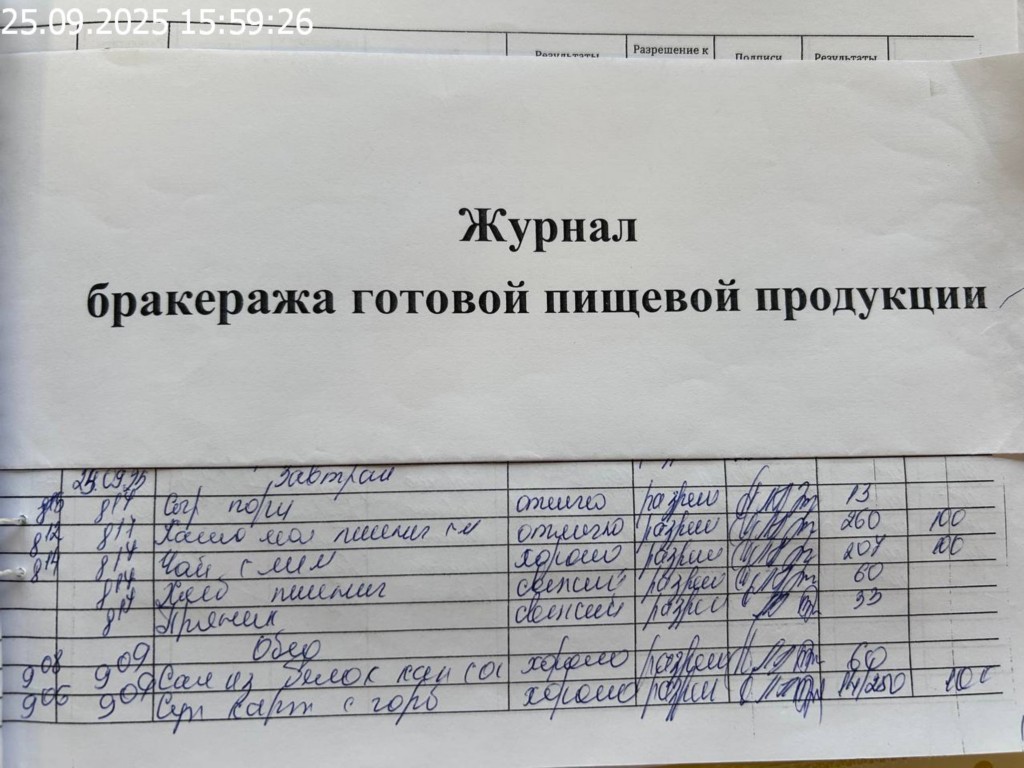 25.09.2025 15:59:26
Результаты Разрешение к Подписи Результаты
Журнал
бракеража готовой пищевой продукции
Завтрак
8¹⁷ Сыр порц отлично разреш 13
8¹² 8¹⁷ Каша мол пшенич отлично разреш 260 100
8¹⁴ 8¹⁷ Чай с лим хорошо разреш 207 100
8¹⁷ Хлеб пшенич свежий разреш 60
8¹⁷ Пряник свежий разреш 33
Обед
9⁰⁸ 9⁰⁹ Сал из белок кап хорошо разреш 60
9⁰⁶ 9⁰⁹ Суп карт с горо хорошо разреш 14/250 100